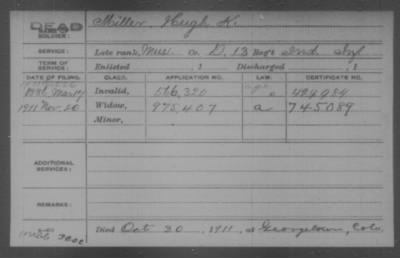 DEAD
SOLDIER: Miller, Hugh K.
SERVICE: Late rank, Mus. Co. D, 13 Reg't Ind Inf
TERM OF SERVICE: Enlisted , 1 Discharged , 1
DATE OF FILING. CLASS. APPLICATION NO. LAW. CERTIFICATE NO.
Invalid, 516,320
1911 Nov. 20 Widow, 975,407 a 745089
Minor,
ADDITIONAL SERVICES:
REMARKS:
Died Oct 30, 1911, at Georgetown, Colo.